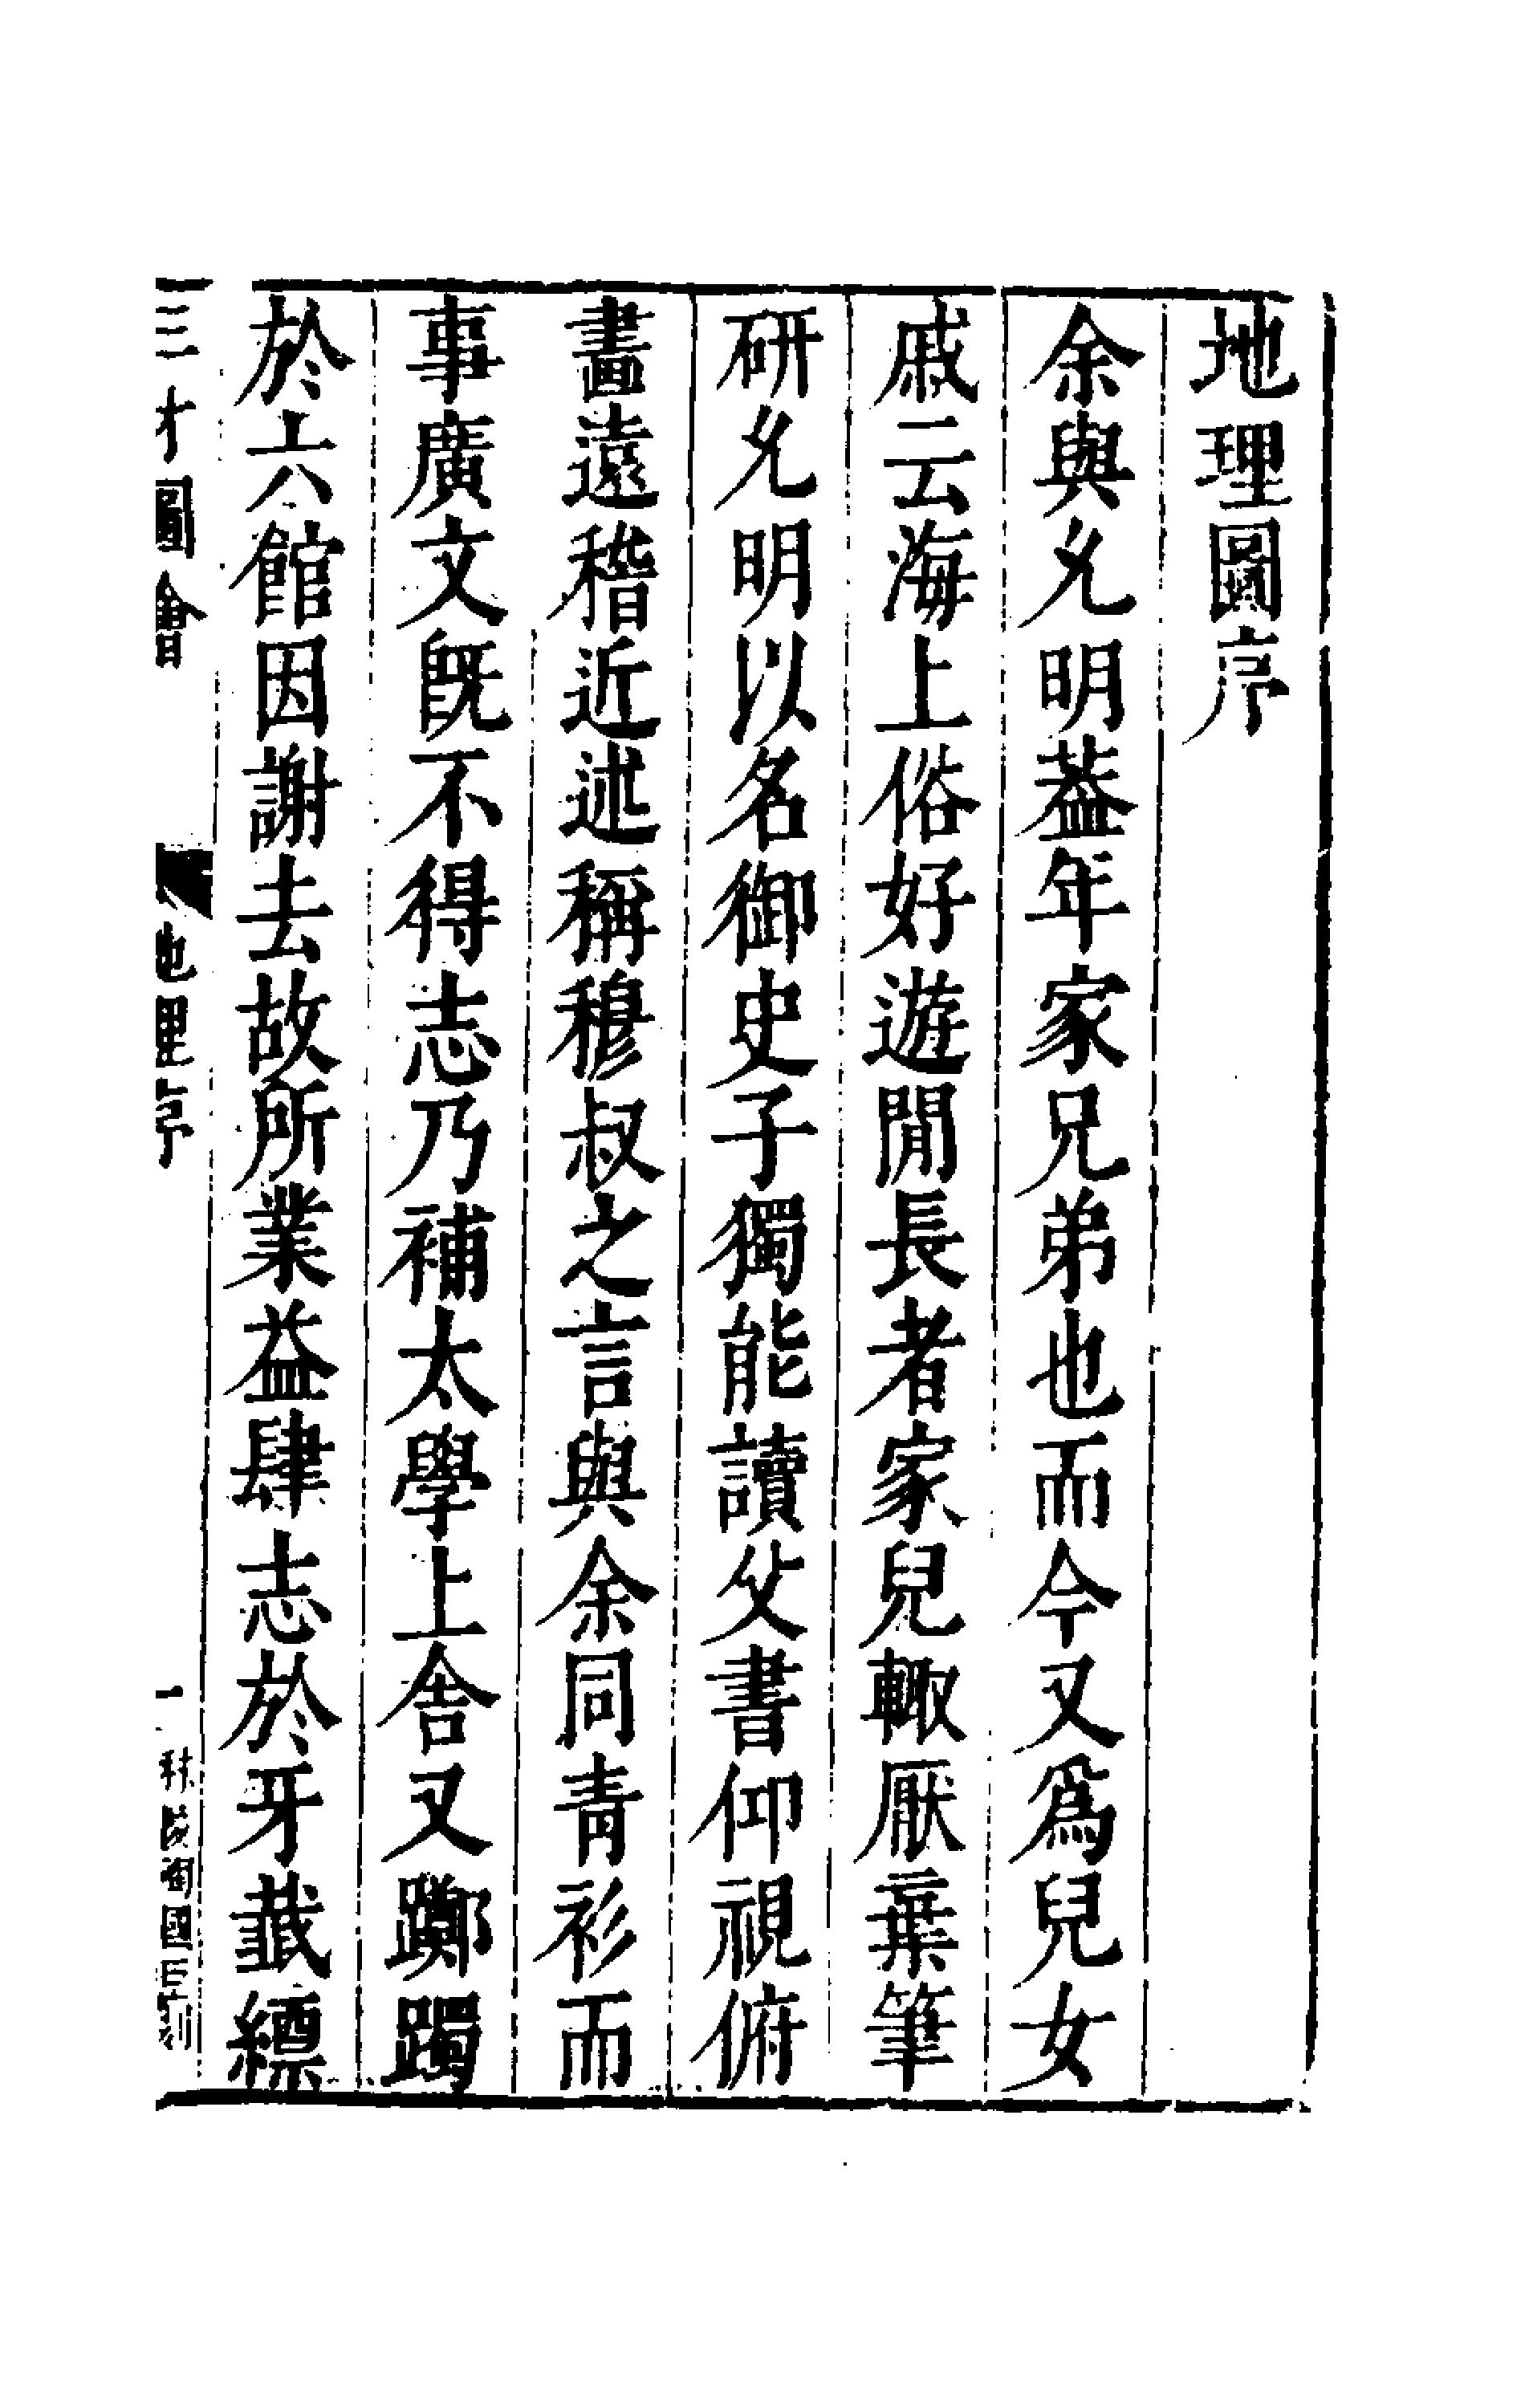 地理圖序
余與允明葢年家兄弟也而今又爲兒女
戚云海上俗好遊閒長者家兒輙厭棄筆
研允明以名御史子獨能讀父書仰視俯
畵遠稽近述稱穆叔之言與余同青衫而
事廣文旣不得志乃補太學上舍又躑躅
於六館因謝去故所業益肆志於牙籖縹
三才圖會
地理序
一
國
刻